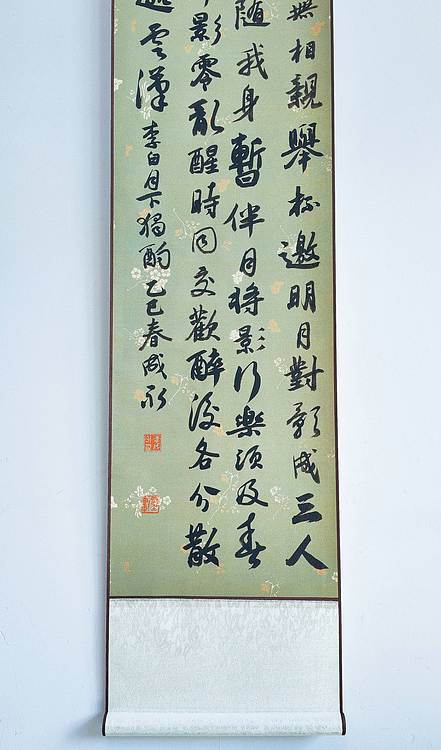 無相親舉杯邀明月對影成三人
隨我身暫伴月將影行樂須及春
影零亂醒時同交歡醉後各分散
雲漢李白月下獨酌乙巳春成